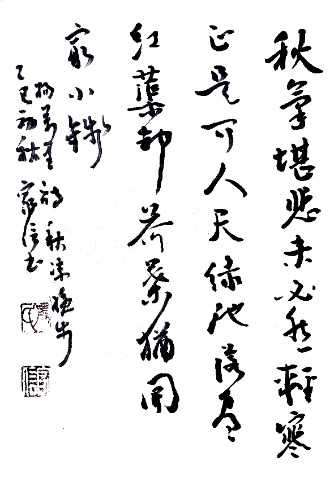 秋氣堪悲未必然輕寒
正是可人天绿池落尽
红蕖却荷葉猶開
最小钱
杨萬里诗秋凉晚步
乙巳初秋家信书